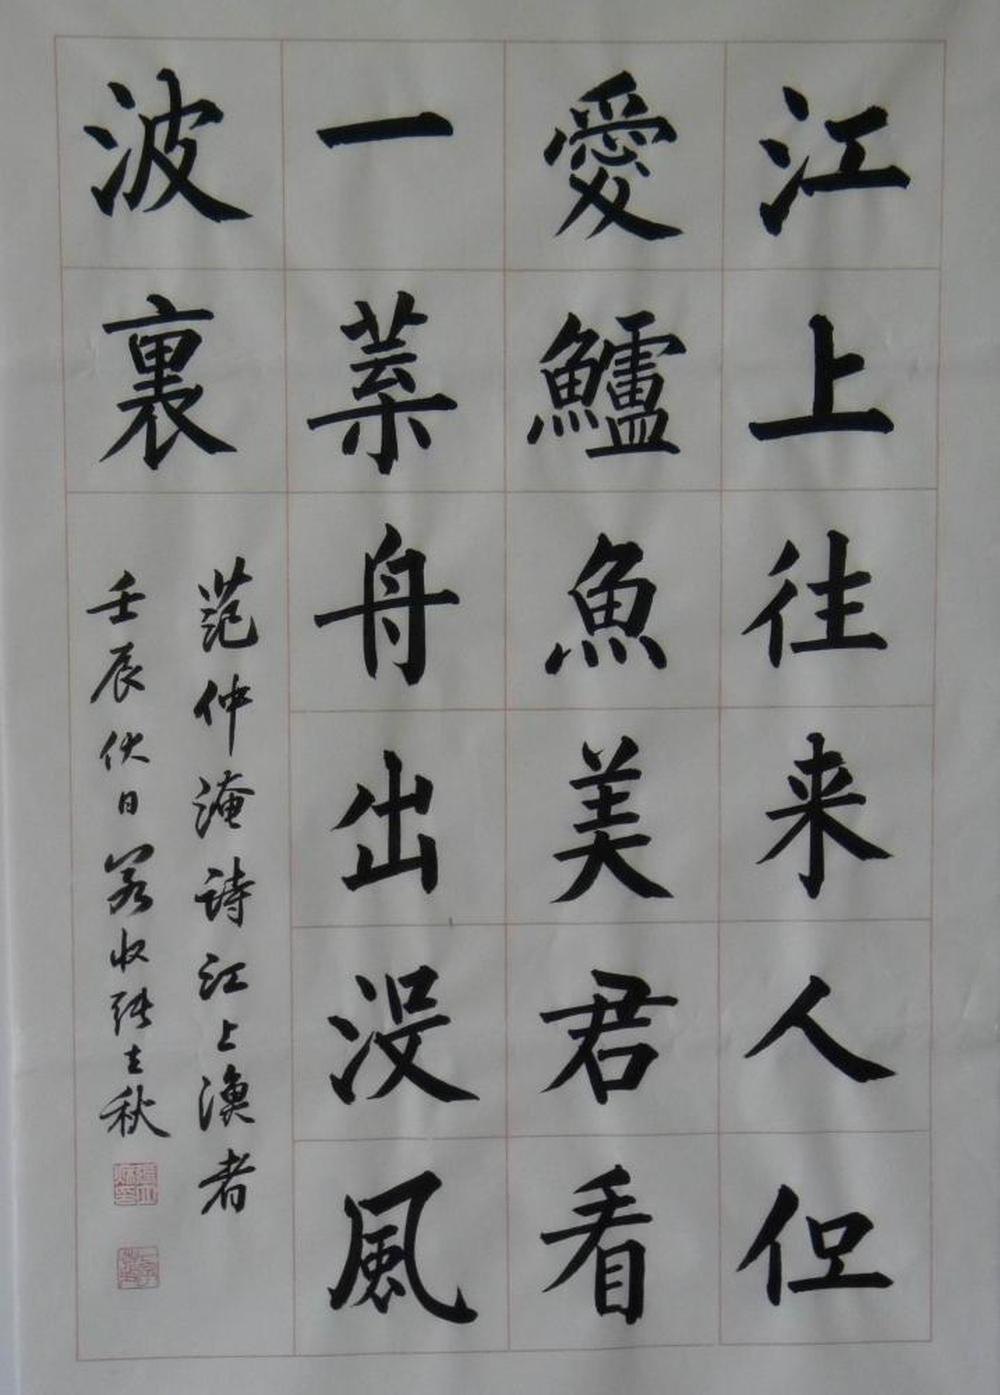 江上往来人但
愛鱸魚美君看
一葉舟出沒風
波裏
范仲淹詩江上漁者
壬辰伏日 張立秋